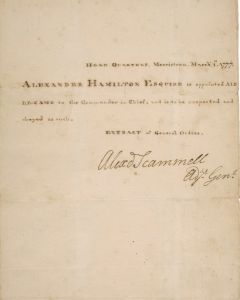 Head Quarters, Morristown, March 1, 1777.
Alexander Hamilton Esquire is appointed Aid
de-Camp to the Commander in Chief; and is to be respected and
obeyed as such.
Extract of General Orders.
Alexd Scammell
Adjt. Genl.